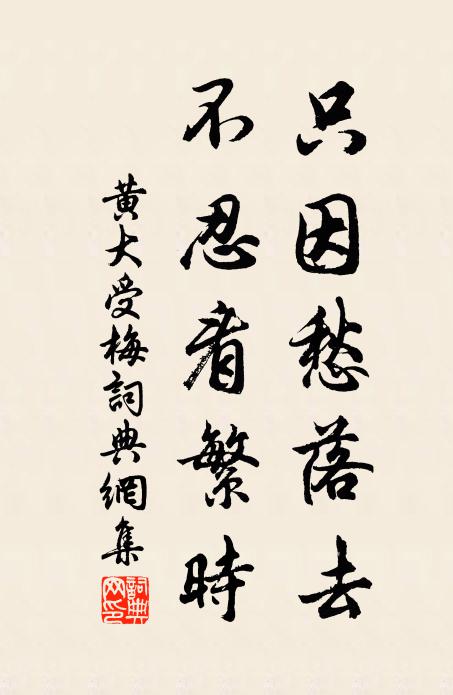 只因愁落去
不忍看繁時
黃大受梅詞典網集
詞典網印